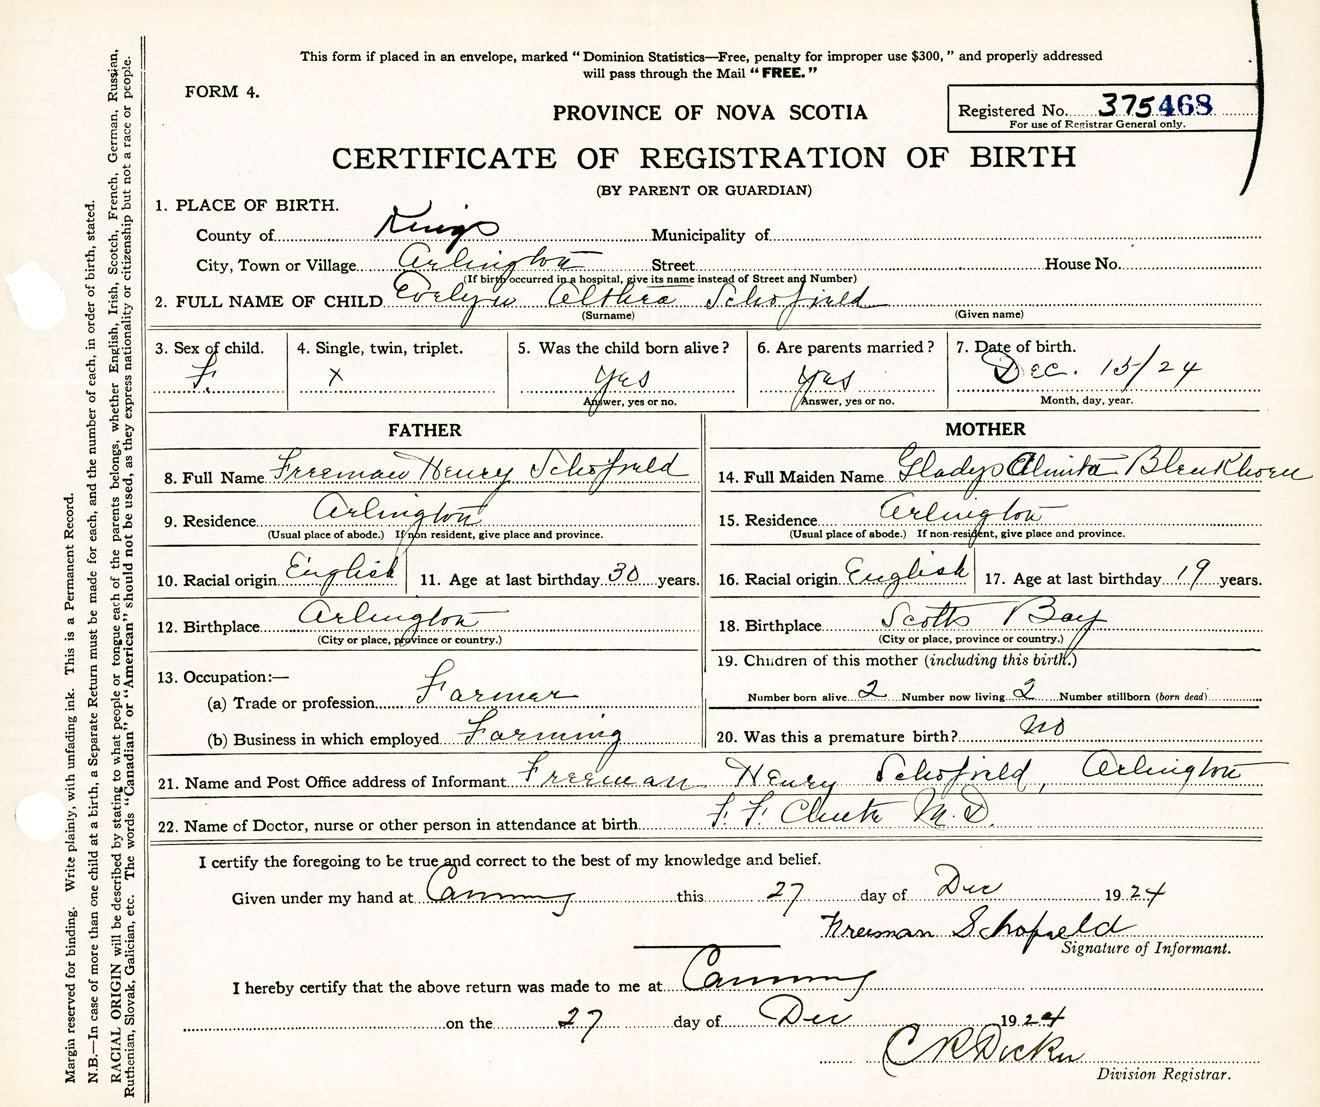 This form if placed in an envelope, marked "Dominion Statistics—Free, penalty for improper use $300," and properly addressed
will pass through the Mail "FREE."
FORM 4.
PROVINCE OF NOVA SCOTIA
Registered No. 375468
For use of Registrar General only.
CERTIFICATE OF REGISTRATION OF BIRTH
(BY PARENT OR GUARDIAN)
1. PLACE OF BIRTH.
County of Kings Municipality of
City, Town or Village Arlington Street House No.
(If birth occurred in a hospital, give its name instead of Street and Number)
2. FULL NAME OF CHILD Evelyn Althea Schofield
(Surname) (Given name)
3. Sex of child. 4. Single, twin, triplet. 5. Was the child born alive? 6. Are parents married? 7. Date of birth.
F. X Yes Yes Dec. 15/24
Answer, yes or no. Answer, yes or no. Month, day, year.
FATHER MOTHER
8. Full Name Freeman Henry Schofield 14. Full Maiden Name Gladys Almita Blenkhorn
9. Residence Arlington 15. Residence Arlington
(Usual place of abode.) If non resident, give place and province. (Usual place of abode.) If non-resident, give place and province.
10. Racial origin English 11. Age at last birthday 30 years. 16. Racial origin English 17. Age at last birthday 19 years.
12. Birthplace Arlington 18. Birthplace Scotts Bay
(City or place, province or country.) (City or place, province or country.)
13. Occupation:— 19. Children of this mother (including this birth.)
(a) Trade or profession Farmer Number born alive 2 Number now living 2 Number stillborn (born dead)
(b) Business in which employed Farming 20. Was this a premature birth? No
21. Name and Post Office address of Informant Freeman Henry Schofield, Arlington
22. Name of Doctor, nurse or other person in attendance at birth F. F. Chute M.D.
I certify the foregoing to be true and correct to the best of my knowledge and belief.
Given under my hand at Canning this 27 day of Dec 1924
Freeman Schofield
Signature of Informant.
I hereby certify that the above return was made to me at Canning
on the 27 day of Dec 1924
C R Dickie
Division Registrar.
Margin reserved for binding. Write plainly, with unfading ink. This is a Permanent Record.
N.B.—In case of more than one child at a birth, a Separate Return must be made for each, and the number of each, in order of birth, stated.
RACIAL ORIGIN will be described by stating to what people or tongue each of the parents belongs, whether English, Irish, Scotch, French, German, Russian,
Ruthenian, Slovak, Galician, etc. The words "Canadian" or "American" should not be used, as they express nationality or citizenship but not a race or people.